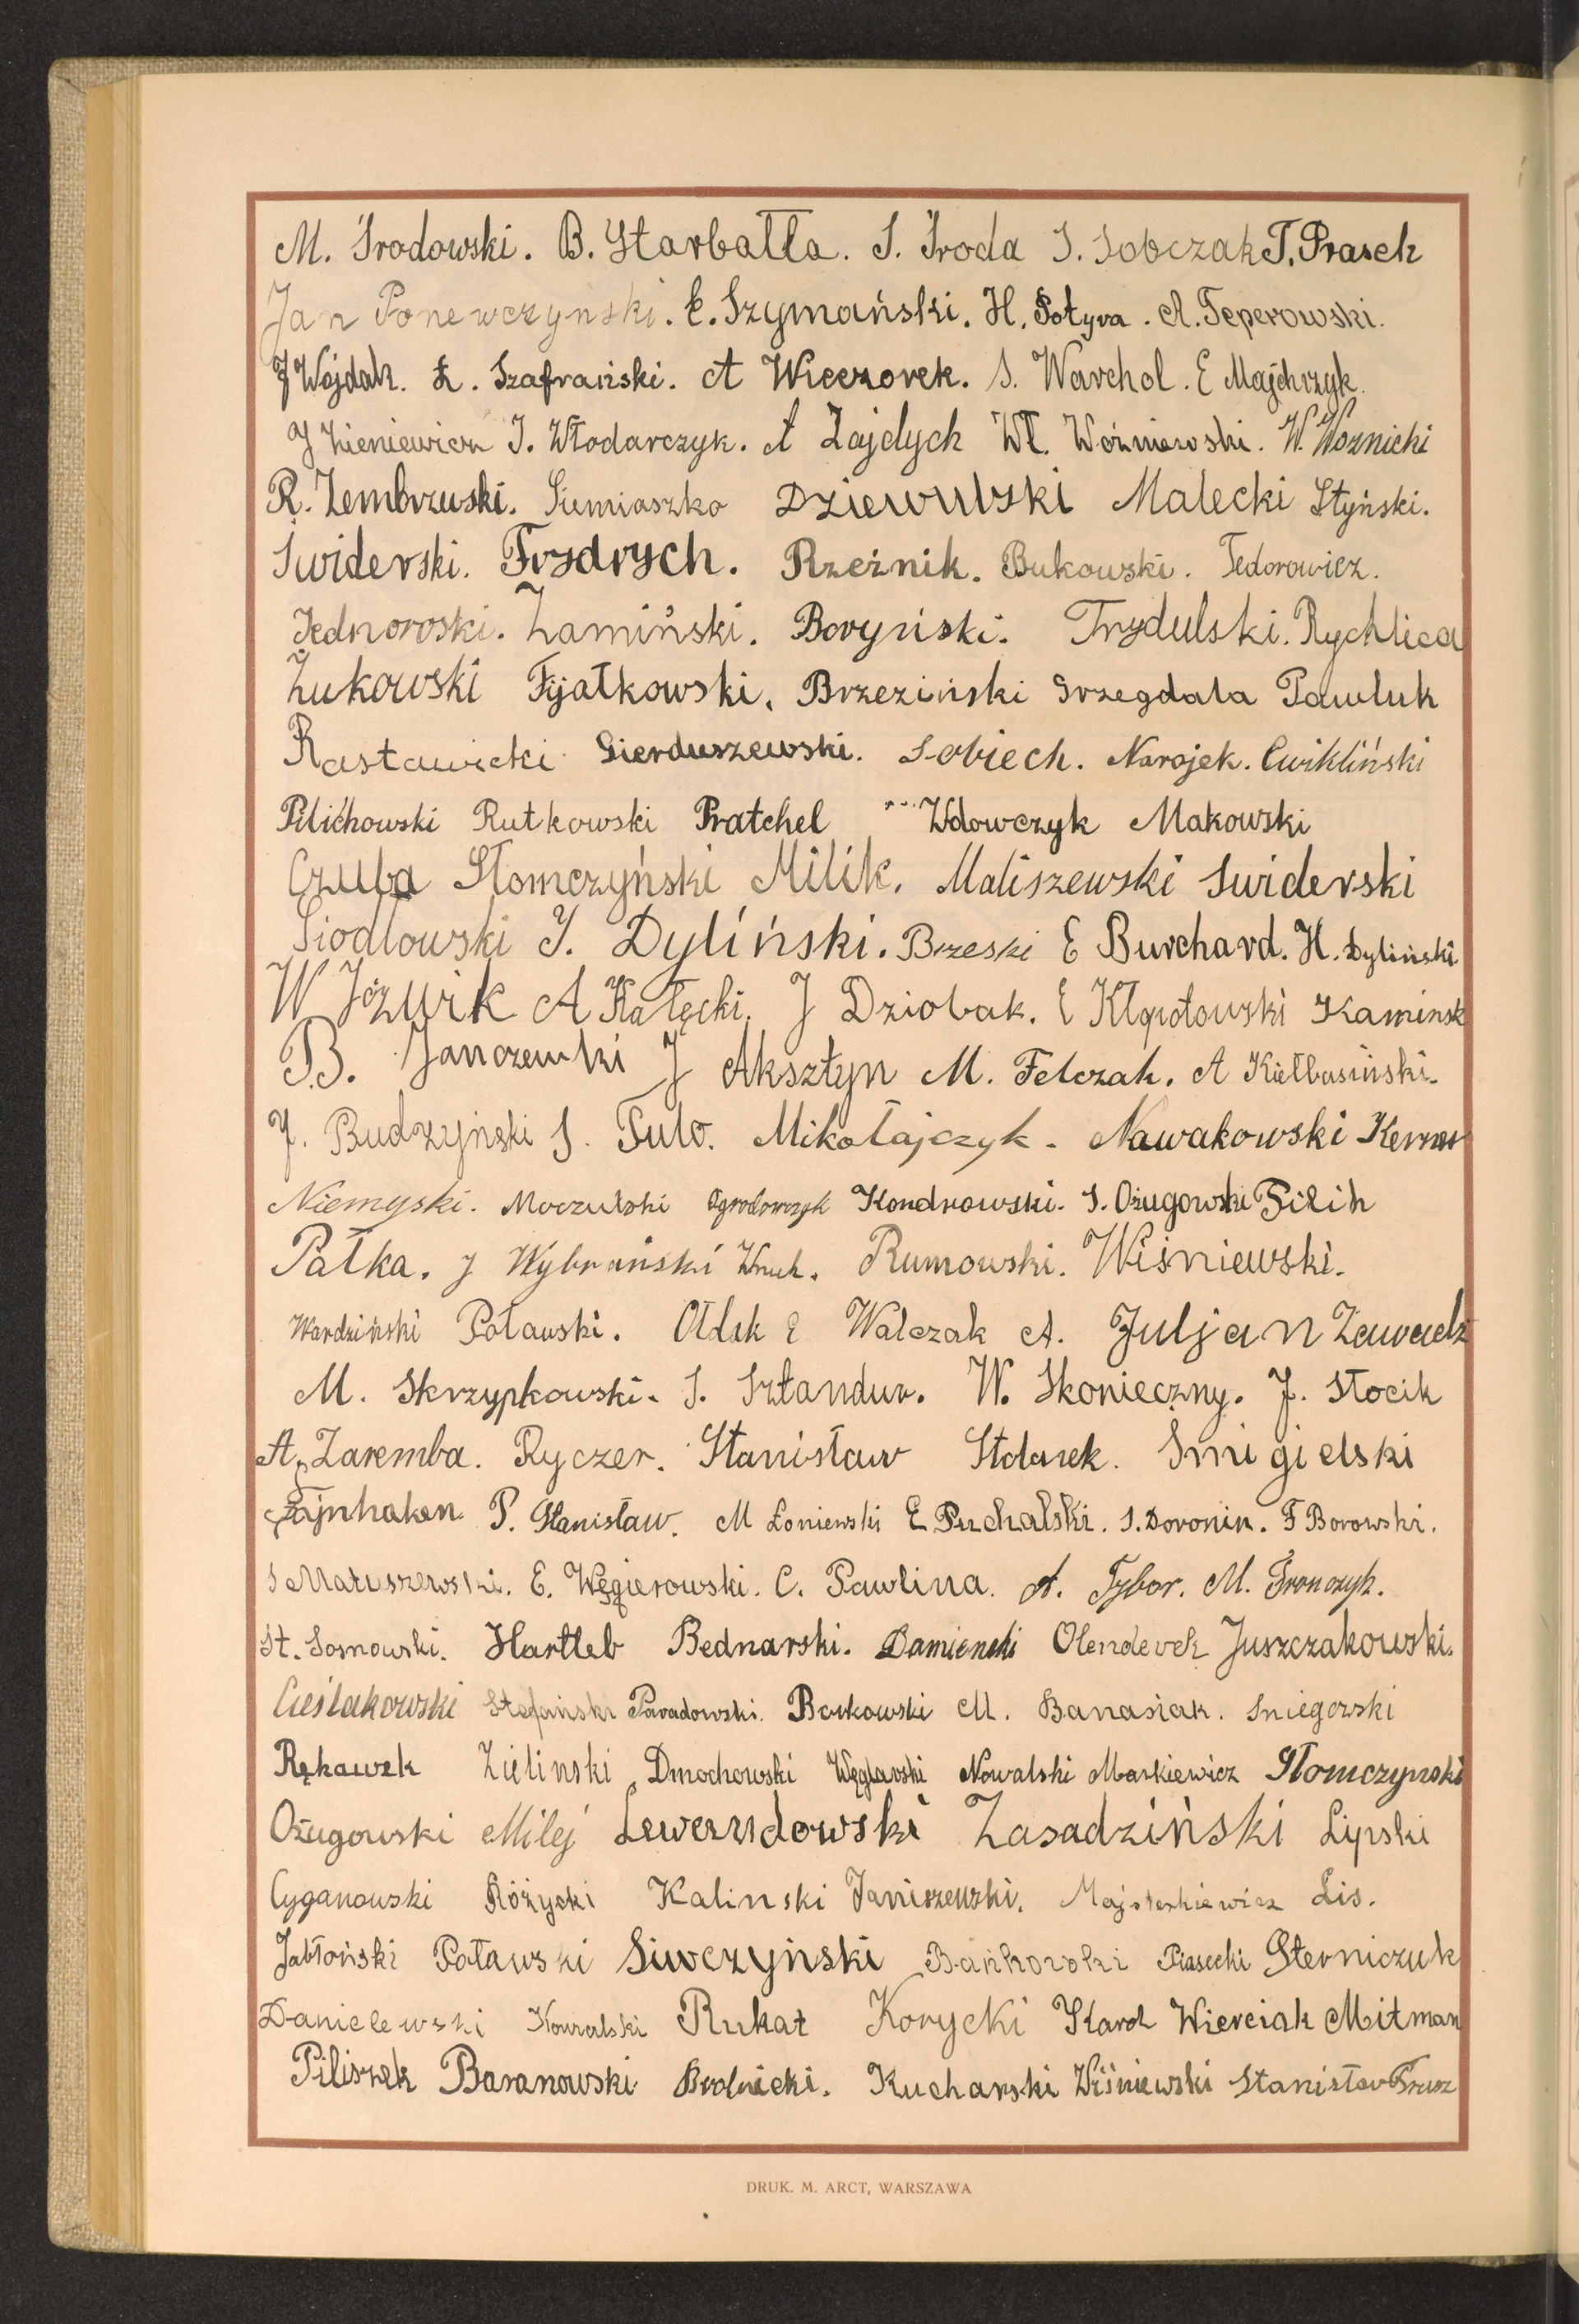 M. Środowski. B. Starbałła. S. Środa S. Sobczak T. Prasek
Jan Ponewczyński. E. Szymański. H. Sotyra. A. Teperowski.
J Wojdak. Ł. Szafrański. A Wieczorek. S. Warchol. E Majchrzyk.
J Zieniewicz J. Włodarczyk. A Zajdych Wł. Woźniewski. W. Woznicki
R. Zembrzuski. Siemiaszko Dziewulski Malecki Styński.
Świderski. Frydrych. Rzeźnik. Bukowski. Fedorowicz.
Jednoroski. Zamiński. Boryński. Trydulski. Rychlica
Żukowski Fijałkowski. Brzeziński Grzegdala Pawluk
Rastawicki Gierduszewski. Sobiech. Narojek. Cwikliński
Pilichowski Rutkowski Pratchel Wdowczyk Makowski
Czuba Słomczyński Milik. Maliszewski Swiderski
Siodłowski J. Dyliński. Brzeski E Burchard. H. Dyliński
W Jóźwik A Kałęcki. J Dziobak. E Kłopotowski Kaminsk
B. Janczewski J Aksztyn M. Felczak. A Kiełbasiński.
J. Budzyński S. Tulo. Mikołajczyk. Nawakowski Kerner
Niemyski. Moczulski Ogrodowczyk Kondrowski. S. Ożugowski Pilih
Pałka. J Wybrański Wnuk. Rumowski. Wiśniewski.
Wardziński Poławski. Ołdak E Walczak A. Juljan Zawadz
M. Skrzypkowski. S. Sztandur. W. Skonieczny. J. Stocik
A. Zaremba. Ryczer. Stanisław Stolarek. Smigielski
Fajnhaken P. Stanisław. M Łoniewski E Puchalski. S. Doronin. F Borowski.
S Matuszewski. E. Węgierowski. C. Pawlina. A. Tybor. M. Fronczyk.
St. Sosnowski. Hartleb Bednarski. Damiencki Olenderek Juszczakowski.
Cieślakowski Stefański Paradowski. Borkowski M. Banasiak. Sniegorski
Rękawek Zielinski Dmochowski Węglarski Nowalski Markiewicz Słomczynski
Ożugowski Milej Lewandowski Zasadziński Lipski
Cyganowski Różycki Kalinski Janiszewski. Majsterkiewicz Lis.
Jabłoński Poławski Siwczyński Bańkowski Piasecki Sterniczuk
Danielewski Kowalski Rukat Korycki Karol Wierciak Mitman
Piliszek Baranowski Brolnicki. Kucharski Wiśniewski Stanisław Prusz
DRUK. M. ARCT, WARSZAWA